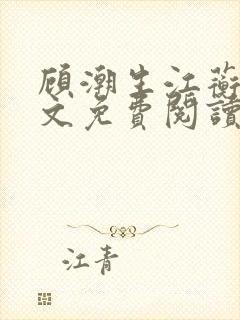 顾潮生江蘅
文免費閱讀
江青